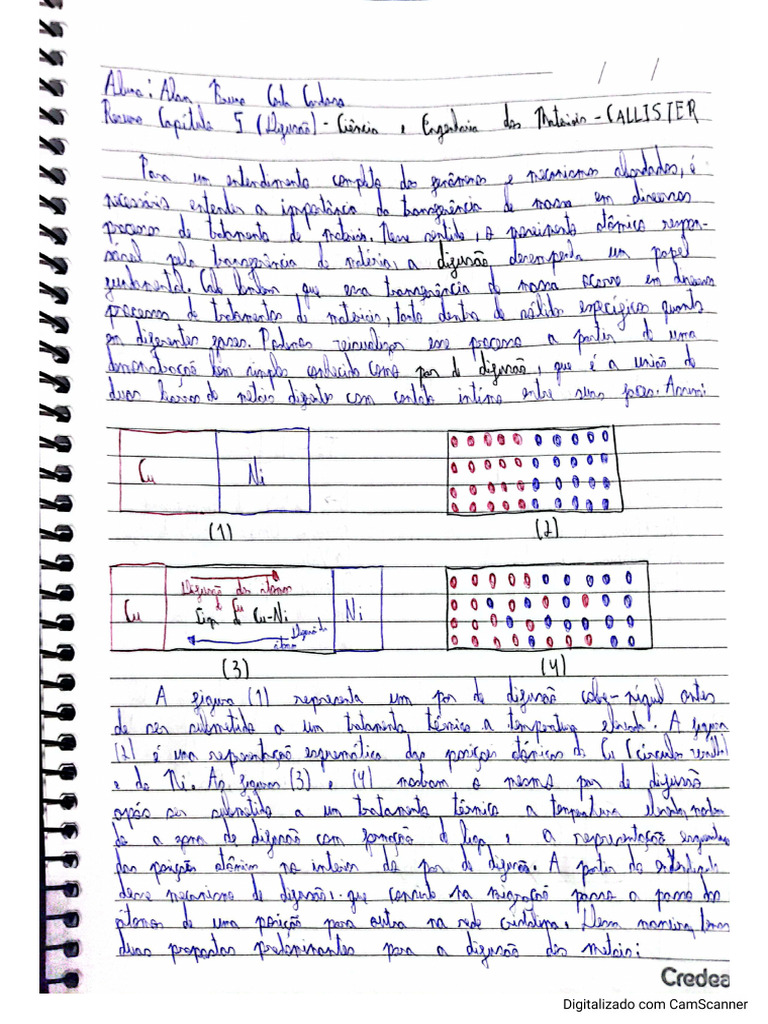 Aluno: Alan Bruno Costa Cardoso
Resumo Capítulo 5 (Difusão) - Ciência e Engenharia dos Materiais - CALLISTER
Para um entendimento completo dos fenômenos e mecanismos abordados, é
necessário entender a importância da transferência de massa em diversos
processos de tratamento de materiais. Nesse sentido, o movimento atômico respon-
sável pela transferência de matéria, a difusão, desempenha um papel
fundamental. Cabe lembrar que essa transferência de massa ocorre em diversos
processos de tratamentos de materiais, tanto dentro de sólidos específicos quanto
em diferentes fases. Podemos visualizar esse processo a partir de uma
demonstração bem simples conhecida como par de difusão, que é a união de
duas barras de metais diferentes com contato íntimo entre suas faces. Assim:
Cu Ni
(1) (2)
Difusão dos átomos
de Cu
Cu Liga de Cu-Ni Ni
Difusão de
átomos
(3) (4)
A figura (1) representa um par de difusão cobre-níquel antes
de ser submetido a um tratamento térmico a temperatura elevada. A figura
(2) é uma representação esquemática das posições atômicas do Cu (círculos
e do Ni. As figuras (3) e (4) mostram o mesmo par de difusão
após ser submetido a um tratamento térmico a temperatura elevada,
a zona de difusão com formação de liga, e a representação
das posições atômicas no interior do par de difusão. A partir do
desse mecanismo de difusão, que consiste na migração passo a passo dos
átomos de uma posição para outra na rede cristalina. Dessa maneira, temos
duas propostas predominantes para a difusão dos metais:
Credea
Digitalizado com CamScanner